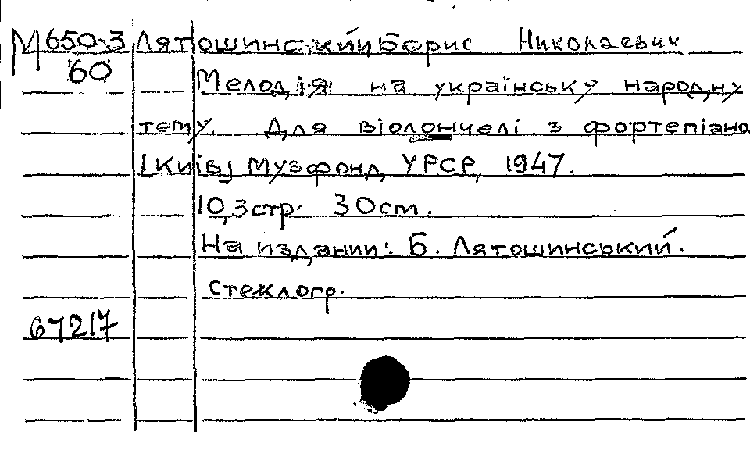 М 650-3 Лятошинский Борис Николаевич
60
Мелодія на українську народну
тему. Для віолончелі з фортепіано
[Київ] Музфонд УРСР, 1947.
10,3 стр. 30 ст.
На издании: Б. Лятошинський.
стеклогр.
67217